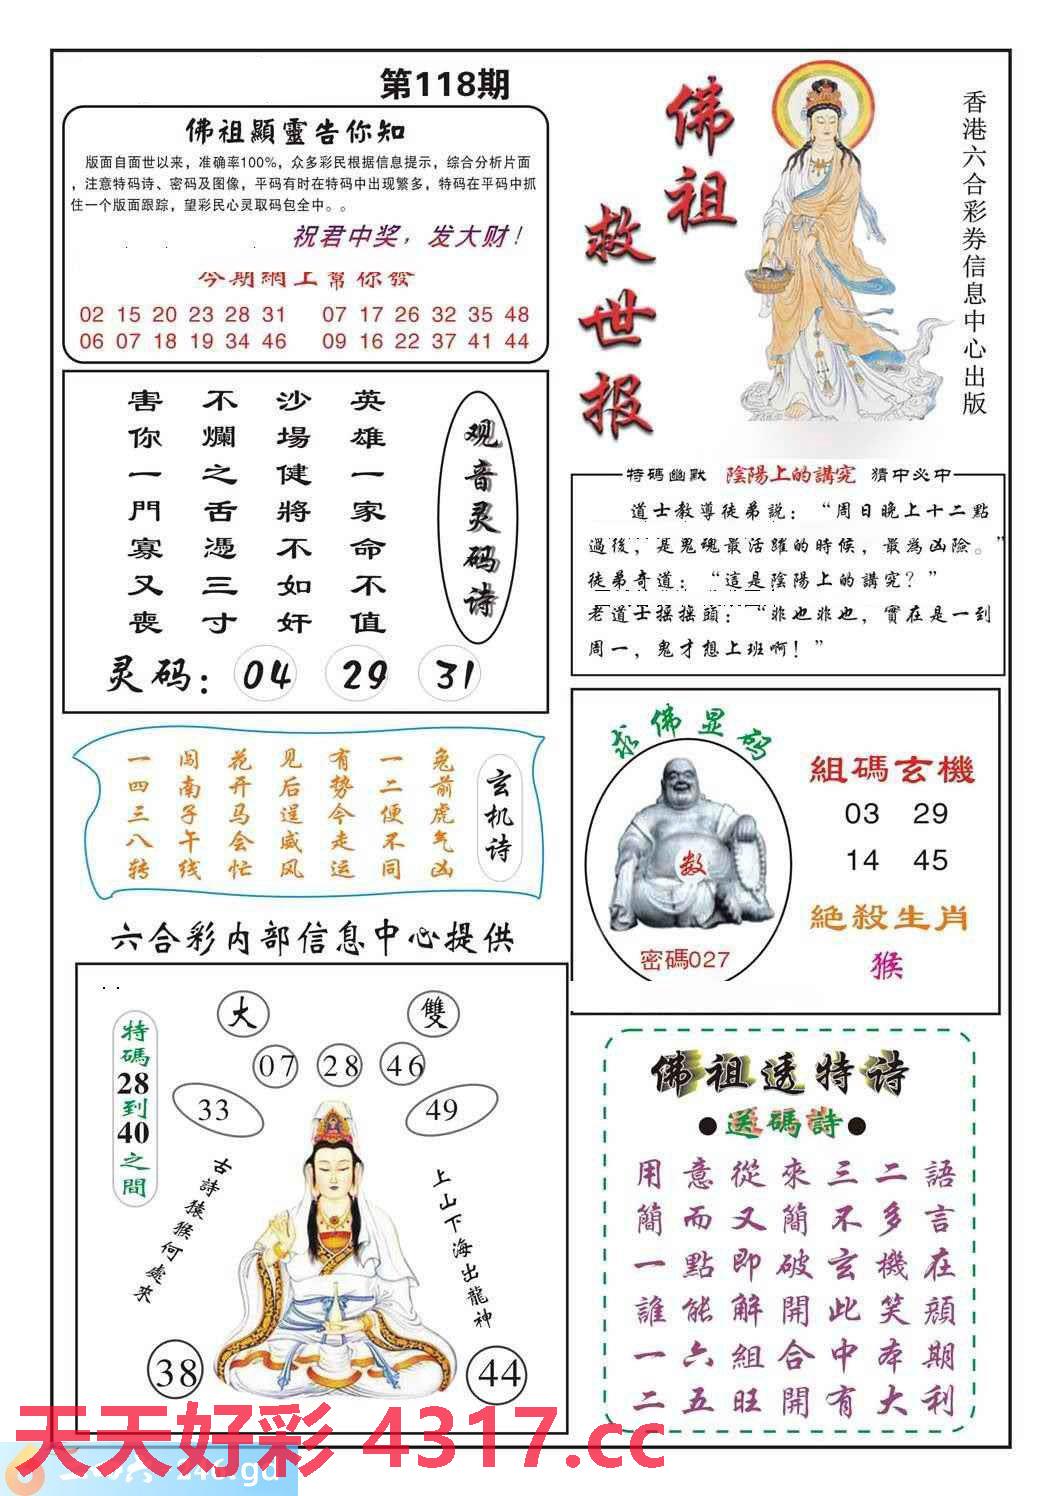 第118期
佛祖顯靈告你知
版面自面世以来，准确率100%，众多彩民根据信息提示，综合分析片面
，注意特码诗、密码及图像，平码有时在特码中出现繁多，特码在平码中抓
住一个版面跟踪，望彩民心灵取码包全中。。
祝君中奖，发大财！
今期網上幫你發
02 15 20 23 28 31 07 17 26 32 35 48
06 07 18 19 34 46 09 16 22 37 41 44
佛祖
救世报
香港六合彩券信息中心出版
观音灵码诗
英雄一家命不值
沙場健將不如奸
不爛之舌憑三寸
害你一門寡又喪
灵码：04 29 31
特碼幽默 陰陽上的講究 猜中必中
道士教導徒弟説：“周日晚上十二點
過後，是鬼魂最活躍的時候，最為凶險。”
徒弟奇道：“這是陰陽上的講究？”
老道士摇摇頭：“非也非也，實在是一到
周一，鬼才想上班啊！”
玄机诗
兔前虎气凶
一二便不同
有势今走运
见后逞威风
花开马会忙
闯南子午线
一四三八转
求佛显码
数
密碼027
組碼玄機
03 29
14 45
絕殺生肖
猴
六合彩内部信息中心提供
特碼28到40之間
大
雙
07 28 46
33
49
古詩猿猴何處來
上山下海出龍神
38
44
佛祖透特诗
●送碼詩●
用意從來三二語
簡而又簡不多言
一點即破玄機在
誰能解開此笑顔
一六組合中本期
二五旺開有大利
天天好彩 4317.cc
246.gd